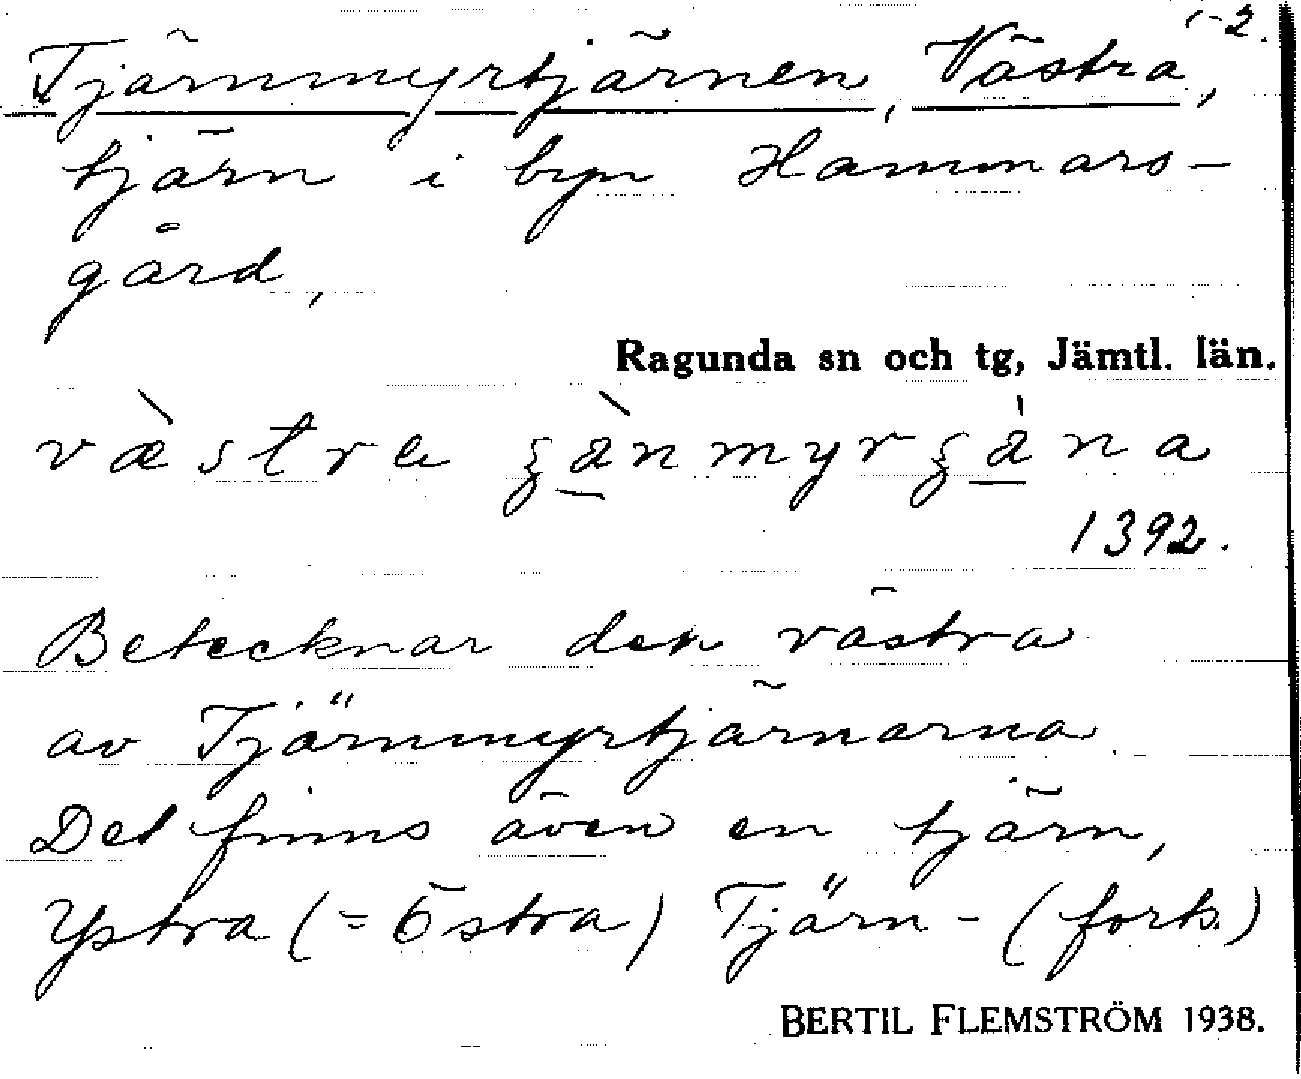 1-2.
Tjärnmyrtjärnen, Västra,
tjärn i byn Hammars-
gård,
Ragunda sn och tg, Jämtl. län.
1392.
Betecknar den västra
av Tjärnmyrtjärnarna
Det finns även en tjärn,
Ystra (= Östra) Tjärn- (forts.)
BERTIL FLEMSTRÖM 1938.